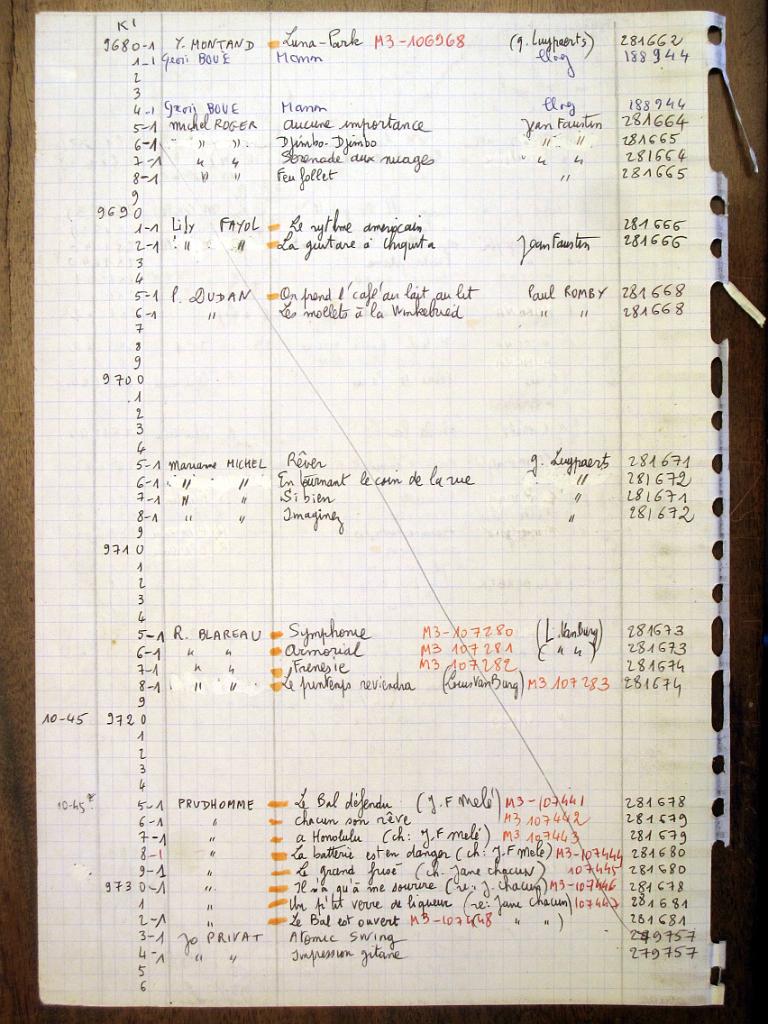 KI
9680-1 Y. MONTAND Luna-Park M3-106968 (g. Luypaerts) 281662
1-1 Geori BOUÉ Manon Cloëz 188944
2
3
4-1 Georì BOUE Manon Cloëz 188944
5-1 Michel ROGER aucune importance Jean Faustin 281664
6-1 " " Djimbo-Djimbo " " 281665
7-1 " " Sérénade aux nuages " " 281664
8-1 " " Feu follet " 281665
9
9690
1-1 Lily FAYOL Le rythme américain 281666
2-1 " " La guitare à Chiquita Jean Faustin 281666
3
4
5-1 P. DUDAN On prend l'café au lait au lit Paul ROMBY 281668
6-1 " Les mollets à la Vinkelried " " 281668
7
8
9
9700
1
2
3
4
5-1 Marianne MICHEL Rêver g. Luypaerts 281671
6-1 " " En tournant le coin de la rue " 281672
7-1 " " Si bien " 281671
8-1 " " Imaginez " 281672
9
9710
1
2
3
4
5-1 R. BLAREAU Symphonie M3-107280 (L. VanBurg) 281673
6-1 " " Armorial M3 107281 ( " " ) 281673
7-1 " " Frénésie M3 107282 281674
8-1 " " Le printemps reviendra (Louis Van Burg) M3 107283 281674
9
10-45 9720
1
2
3
4
10-45? 5-1 PRUDHOMME Le Bal défendu (J.F Melé) M3-107441 281678
6-1 " chacun son rêve M3 107442 281679
7-1 " a Honolulu (ch: J.F Melé) M3 107443 281679
8-1 " La batterie est en danger (ch: J.F Melé) M3-107444 281680
9-1 " Le grand frisé (ch. Jane chacun) 107445 281680
9730-1 " Il n'a qu'à me sourire (re: J. chacun) M3-107446 281678
1 " Un p'tit verre de liqueur (re: Jane chacun) 107447 281681
2-1 " Le Bal est ouvert M3-107448 ( " " ) 281681
3-1 Jo PRIVAT Atomic Swing 279757
4-1 " " Impression gitane 279757
5
6